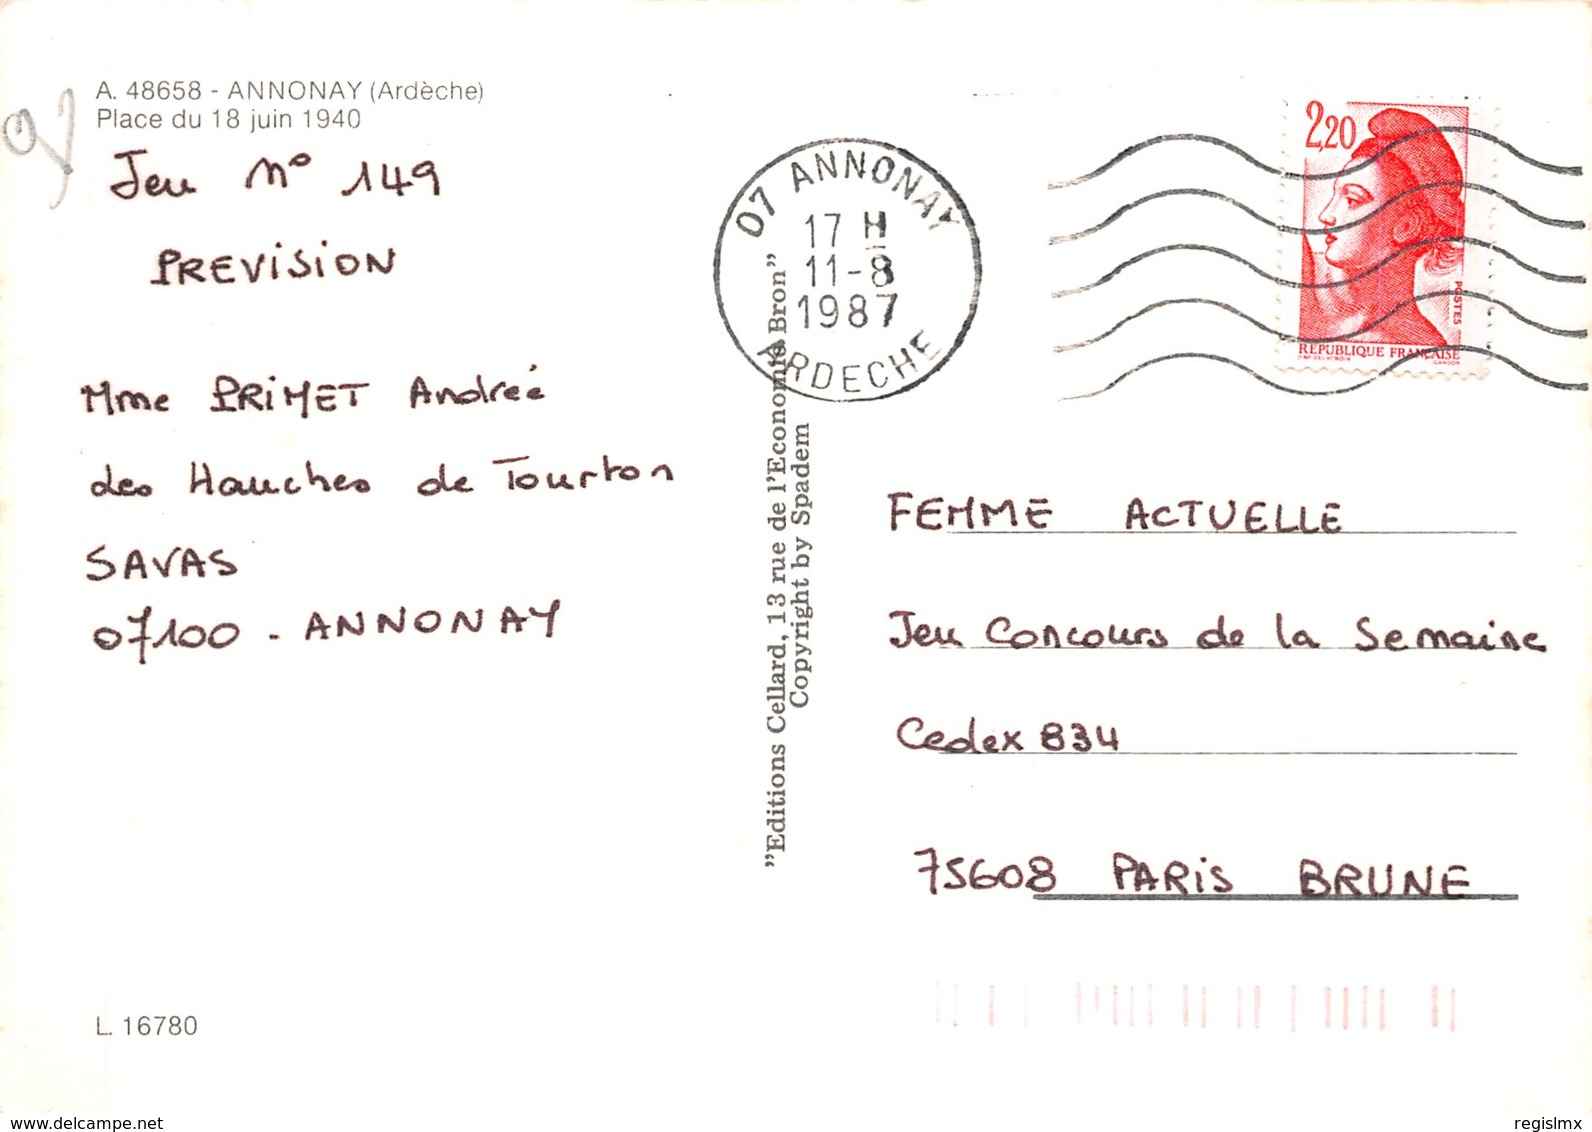 A. 48658 - ANNONAY (Ardèche)
Place du 18 juin 1940
Jeu N° 149
PREVISION
Mme PRIMET Andrée
des Hauches de Tourton
SAVAS
07100 - ANNONAY
L. 16780
"Editions Cellard, 13 rue de l'Economie Bron"
Copyright by Spadem
07 ANNONAY
17 H
11-8
1987
ARDECHE
2,20
POSTES
REPUBLIQUE FRANÇAISE
GANDON
FEMME ACTUELLE
Jeu Concours de la Semaine
Cedex 834
75608 PARIS BRUNE
www.delcampe.net
regislmx